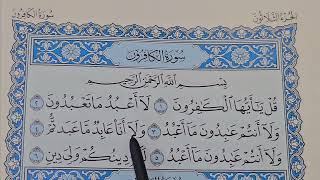 الجزء الثلاثون
سورة الكافرون
سورة الكافرون
بسم الله الرحمن الرحيم
قُلْ يَٰٓأَيُّهَا ٱلْكَٰفِرُونَ ١ لَآ أَعْبُدُ مَا تَعْبُدُونَ ٢
وَلَآ أَنتُمْ عَٰبِدُونَ مَآ أَعْبُدُ ٣ وَلَآ أَنَا۠ عَابِدٌ مَّا عَبَدتُّمْ ٤
وَلَآ أَنتُمْ عَٰبِدُونَ مَآ أَعْبُدُ ٥ لَكُمْ دِينُكُمْ وَلِىَ دِينِ ٦